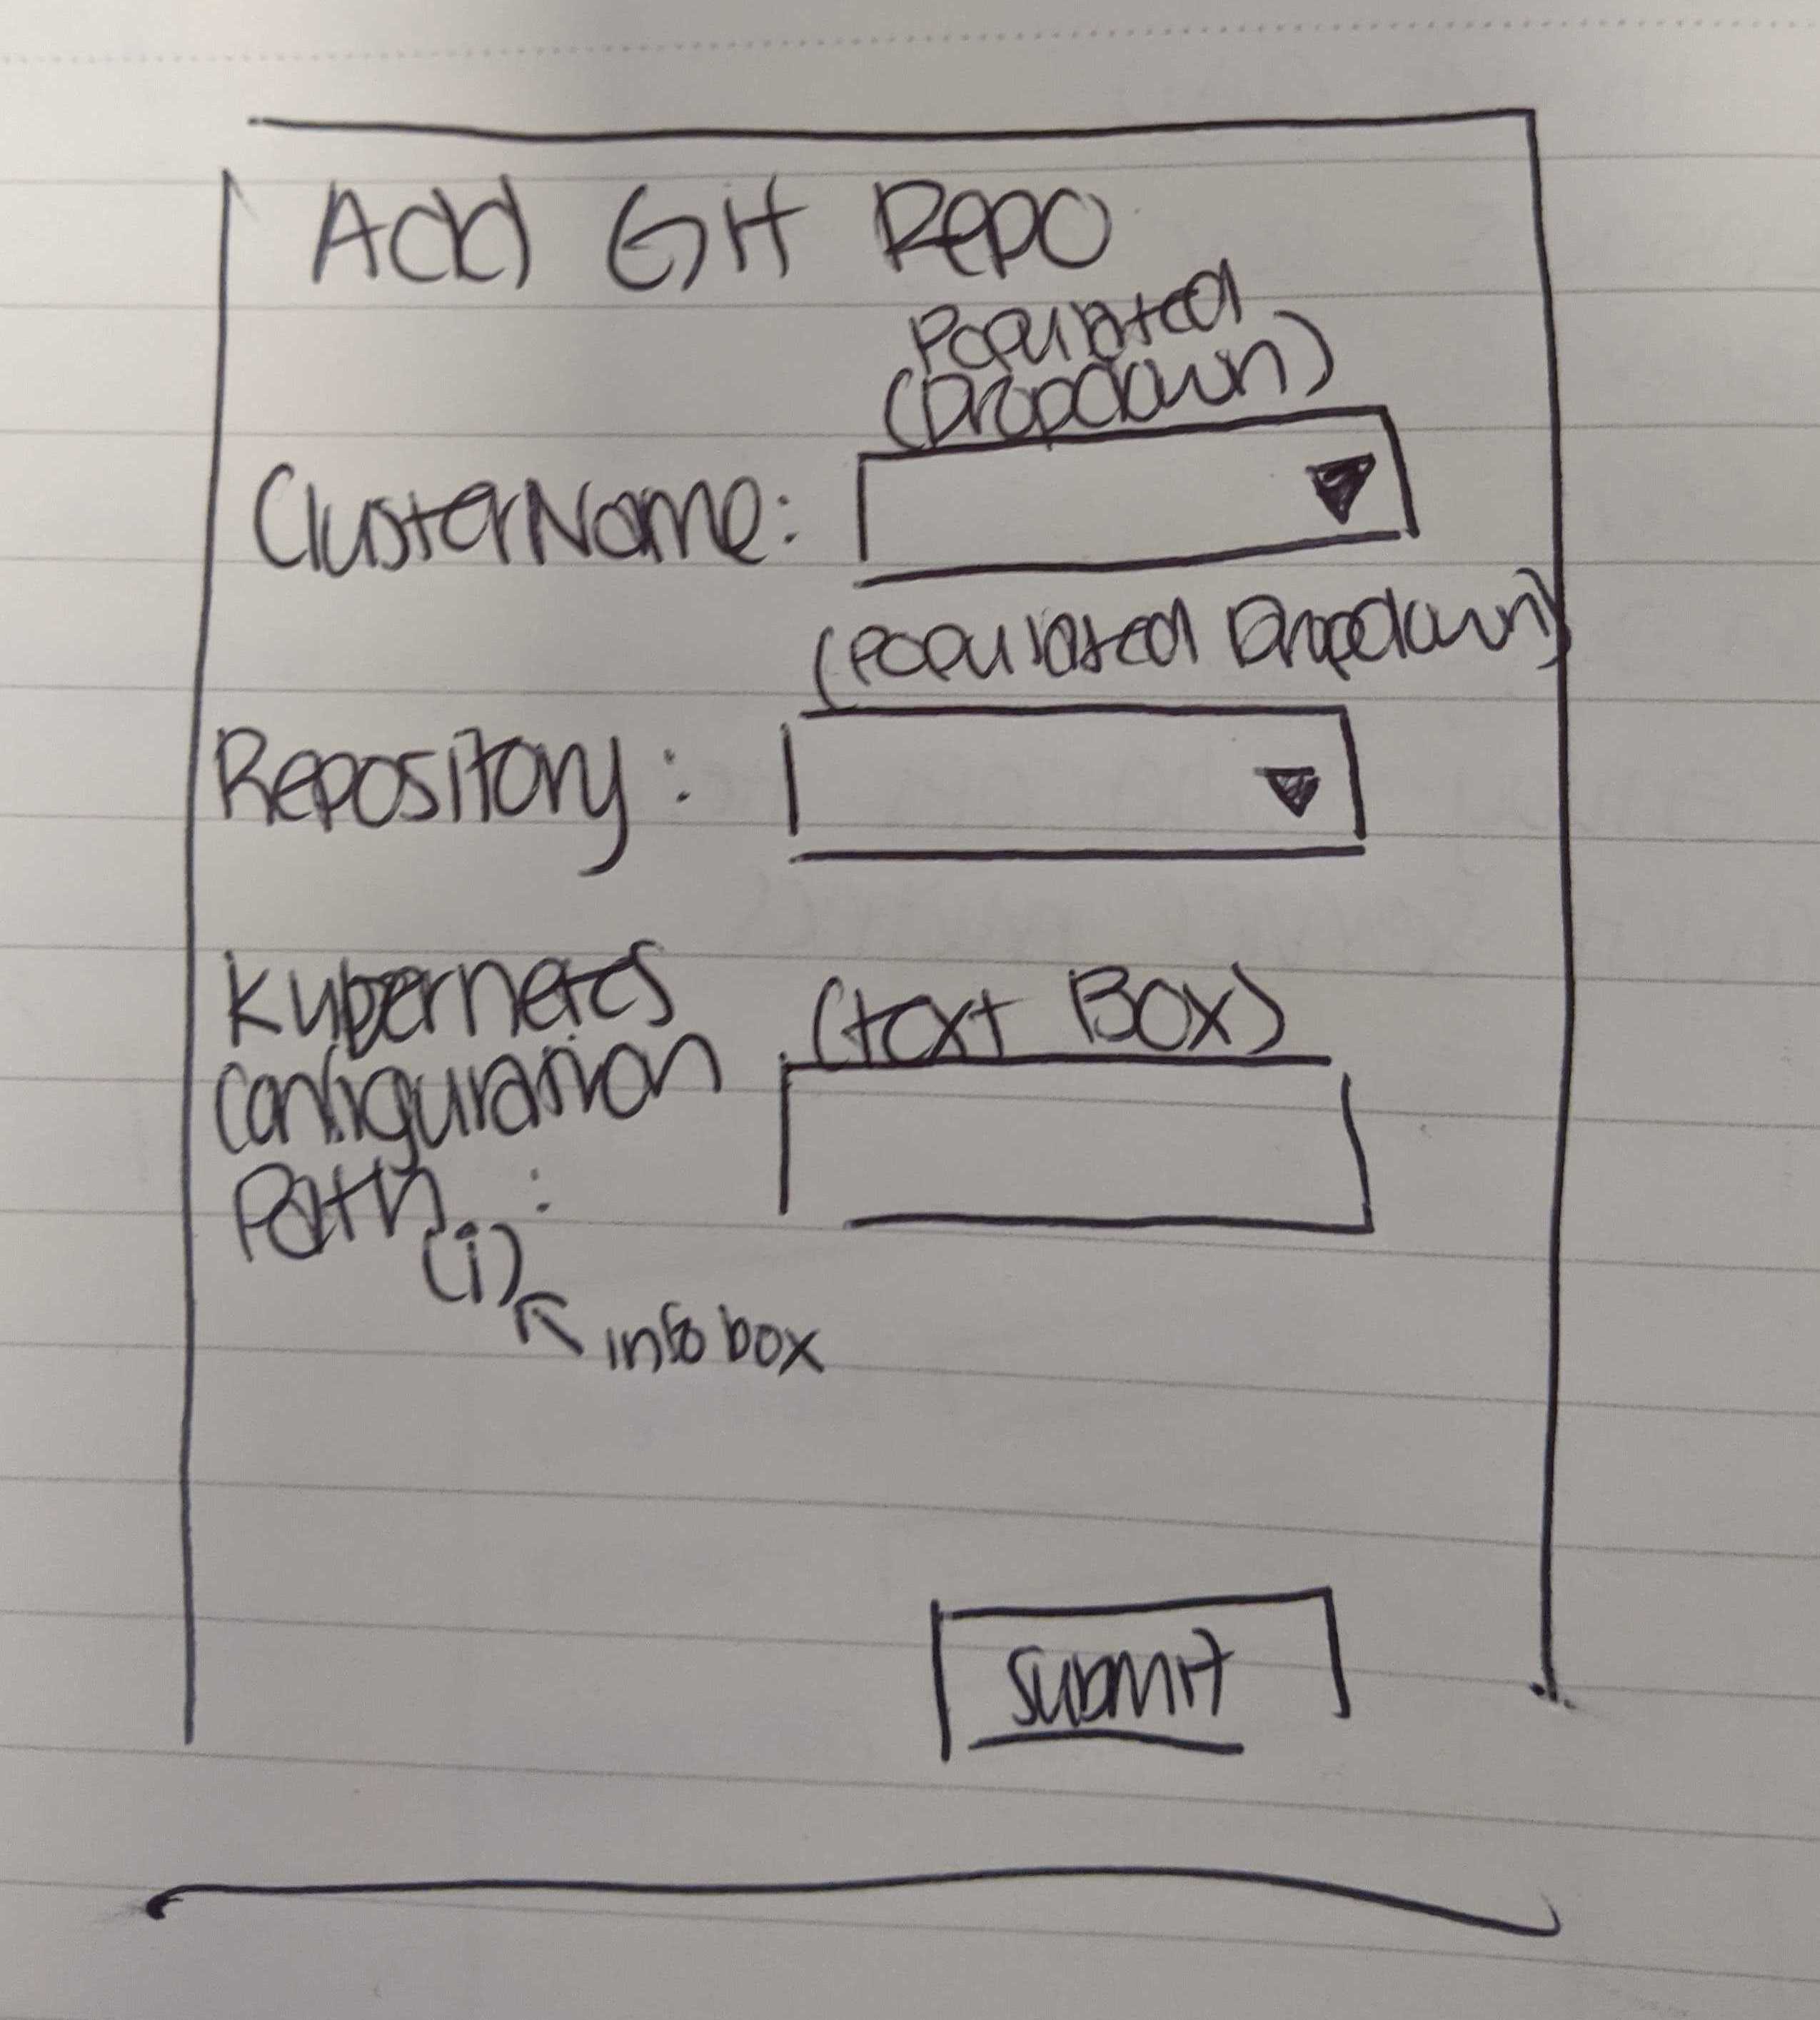 Add Git Repo
Populated
(Dropdown)
ClusterName:
(Populated Dropdown)
Repository:
Kubernetes
Configuration
Path :
(text Box)
(i)
info box
submit